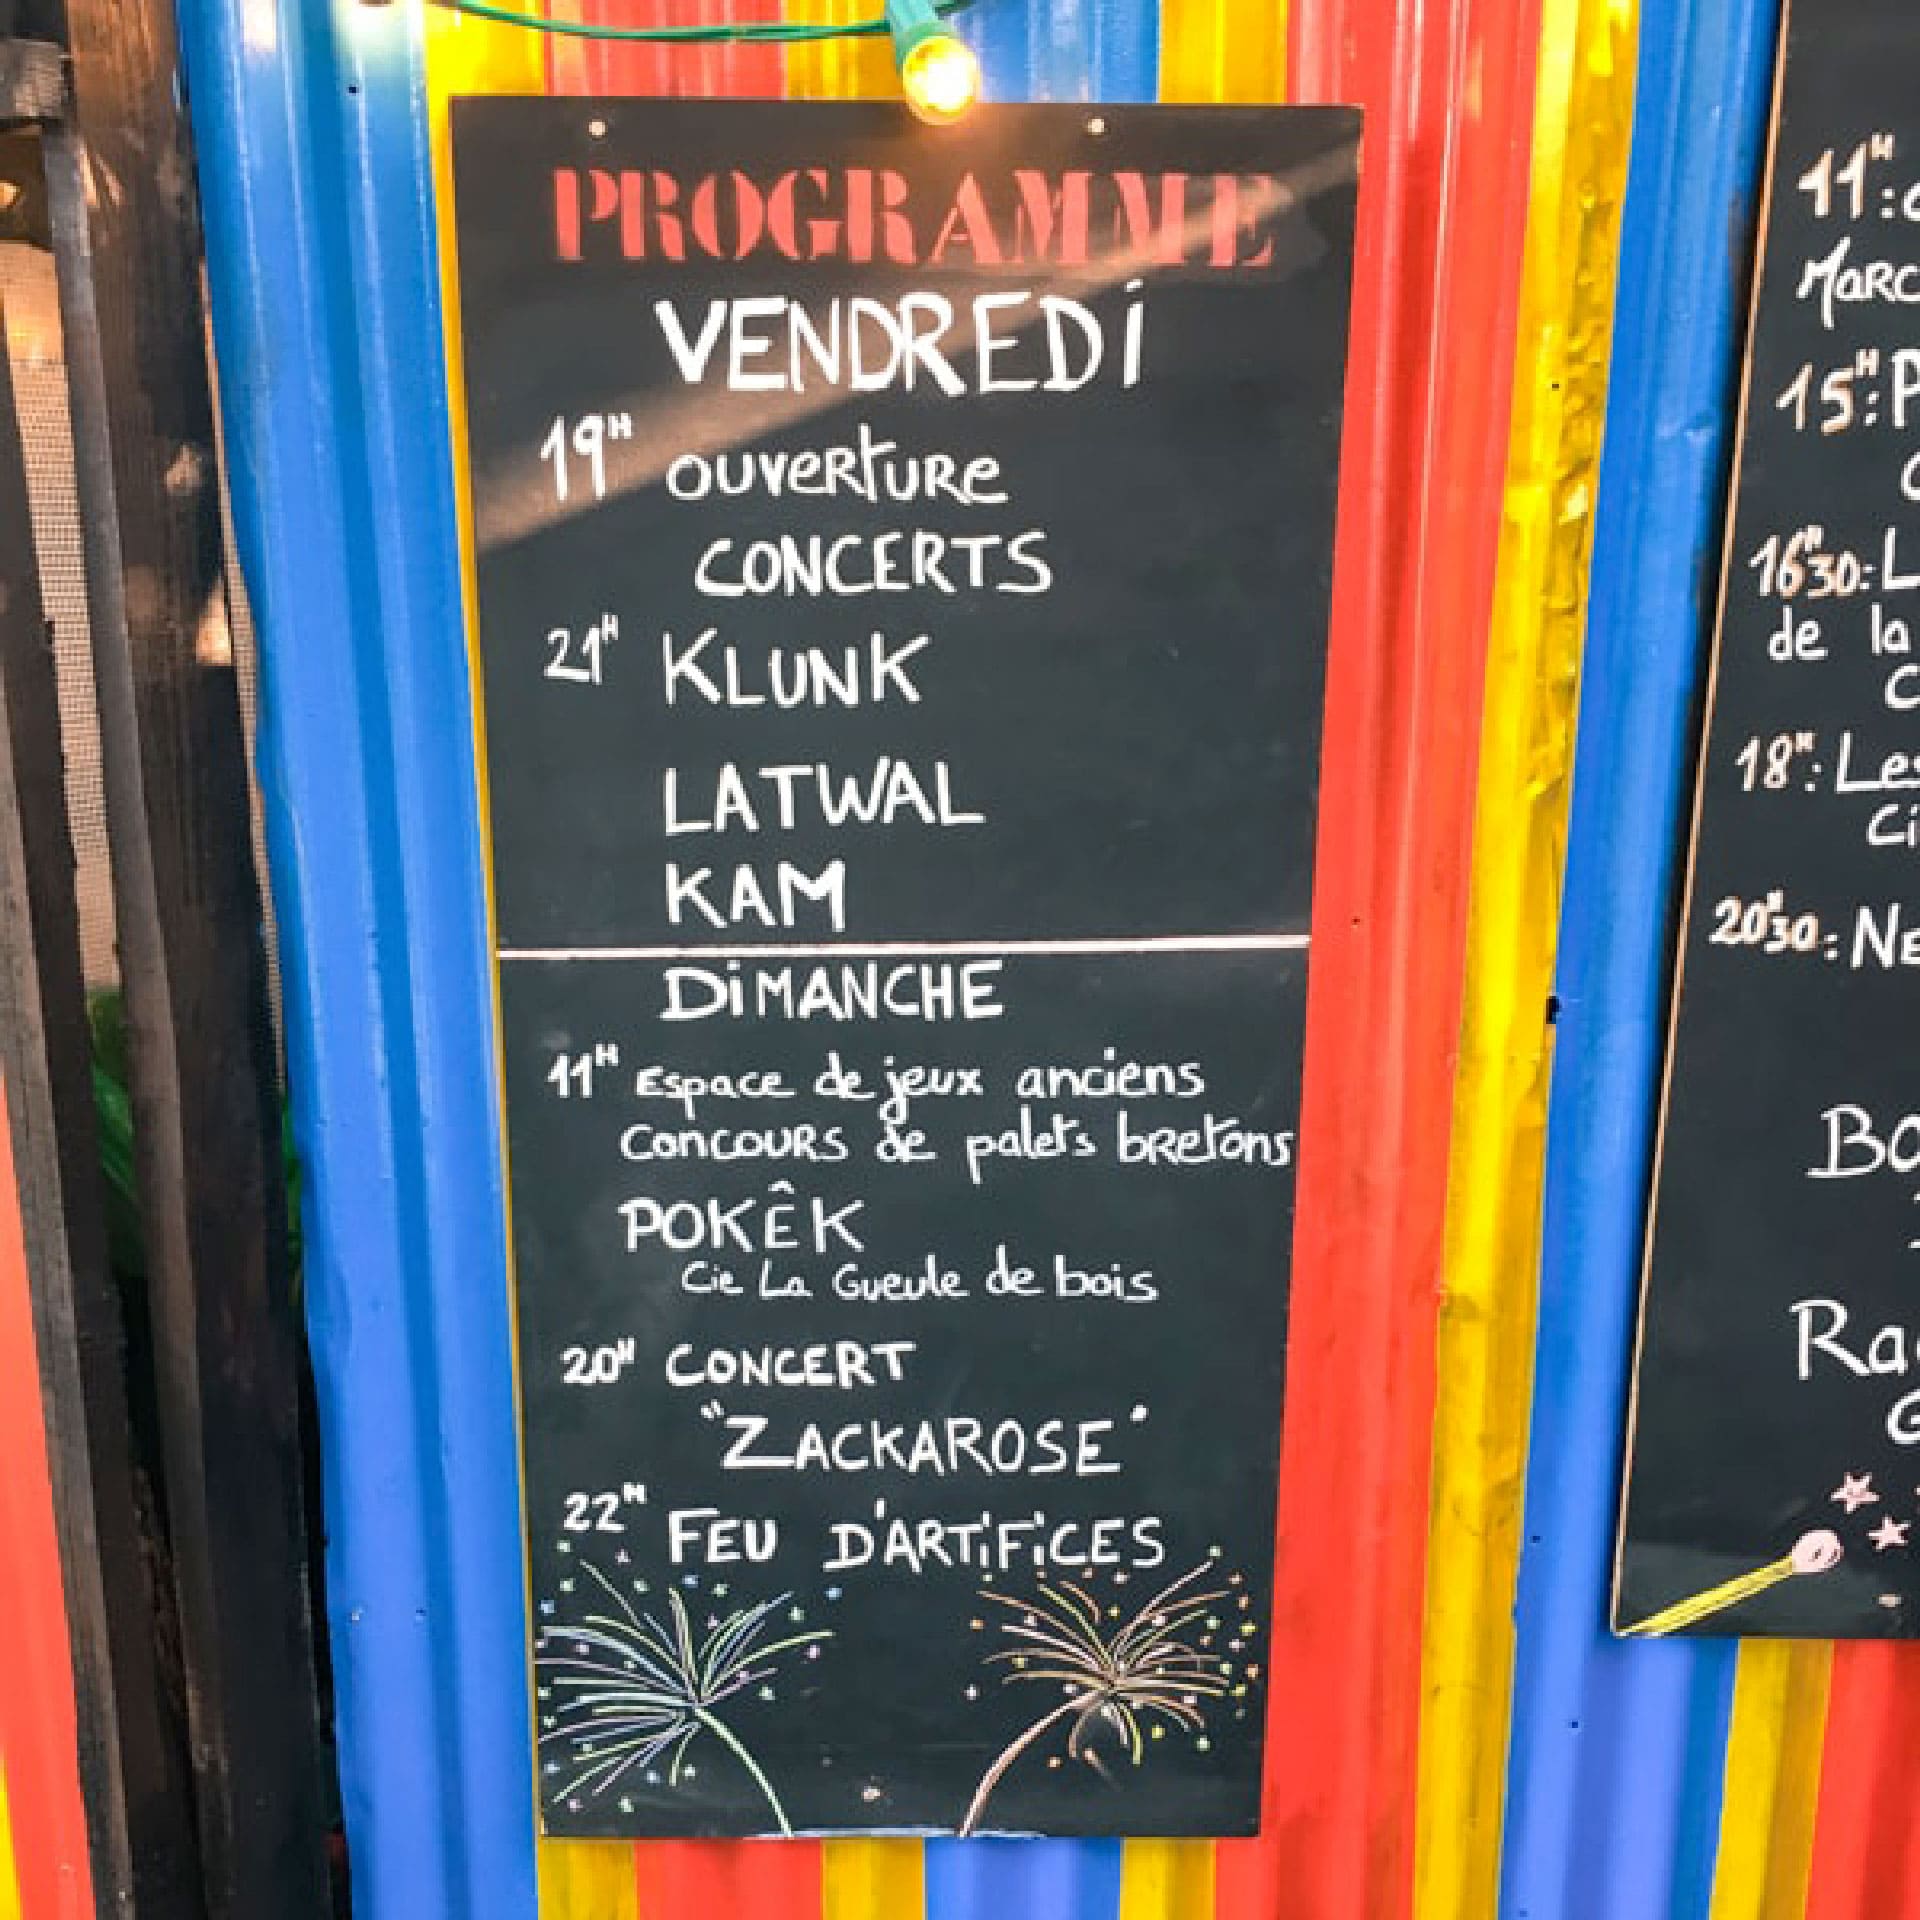 PROGRAMME
VENDREDi
19H OUVERTURE
CONCERTS
21H KLUNK
LATWAL
KAM
DiMANCHE
11H Espace de jeux anciens
CONCOURS de palets bretons
POKÊK
Cie La Gueule de bois
20H CONCERT
"ZACKAROSE"
22H FEU D'ARTiFiCES
11H:
15H:
16H30:
de la
18H: Les
20H30: